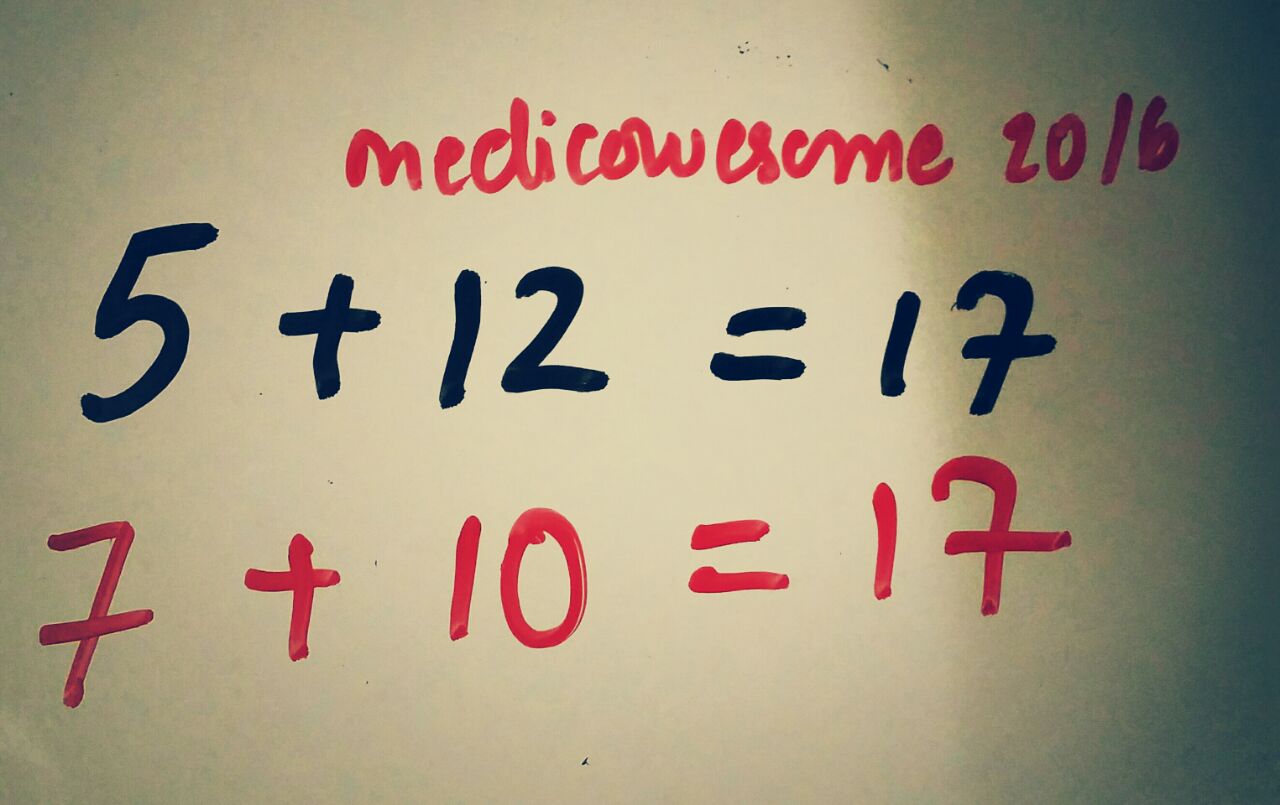 medicowesome 2016
5 + 12 = 17
7 + 10 = 17